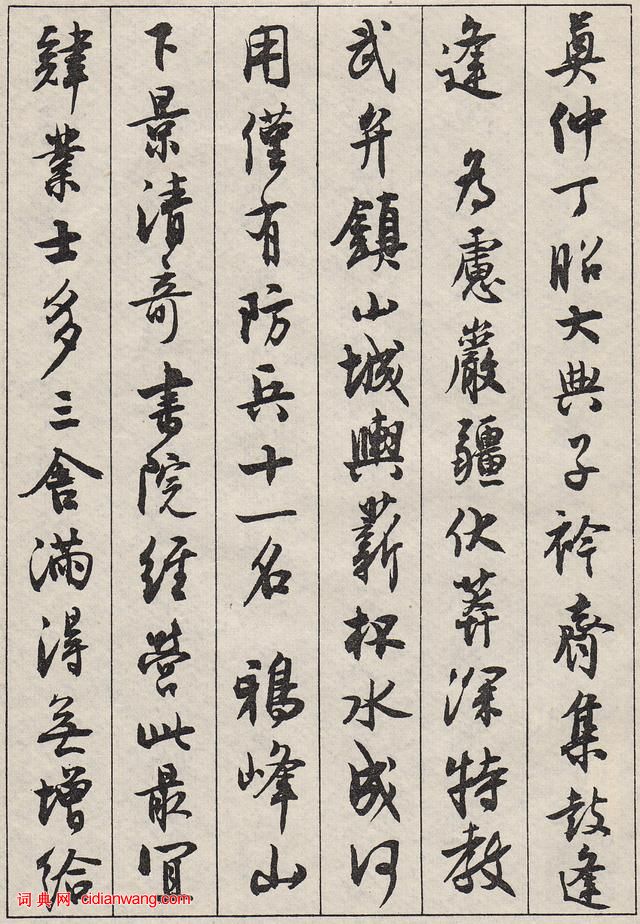 奠仲丁昭大典子衿齊集鼓逢
逢 為慮巖疆伏莽深特教
武弁鎮山城輿薪杯水成何
用僅有防兵十一名 鴉峰山
下景清奇書院經營此最宜
肄業士多三舍滿得無增給
词典网:cidianwang.com